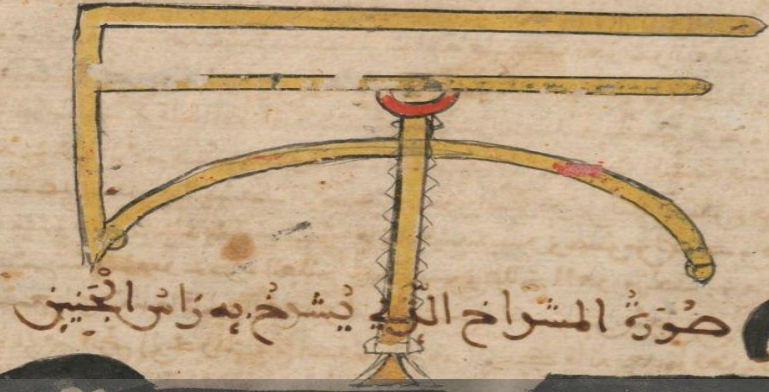 صُوْرَةُ المشداخ الذي يُشدخُ بِهِ رَاسُ الجَنِين